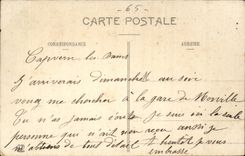 65
CARTE POSTALE
CORRESPONDANCE
ADRESSE
Capvern les Bains
J'arriverai dimanche au soir
venez me chercher à la gare de Morville
Tu n'as jamais écrit je suis la seule
personne qui n'ait rien reçu aussi je
de tout détail à bientôt je vous
embrasse